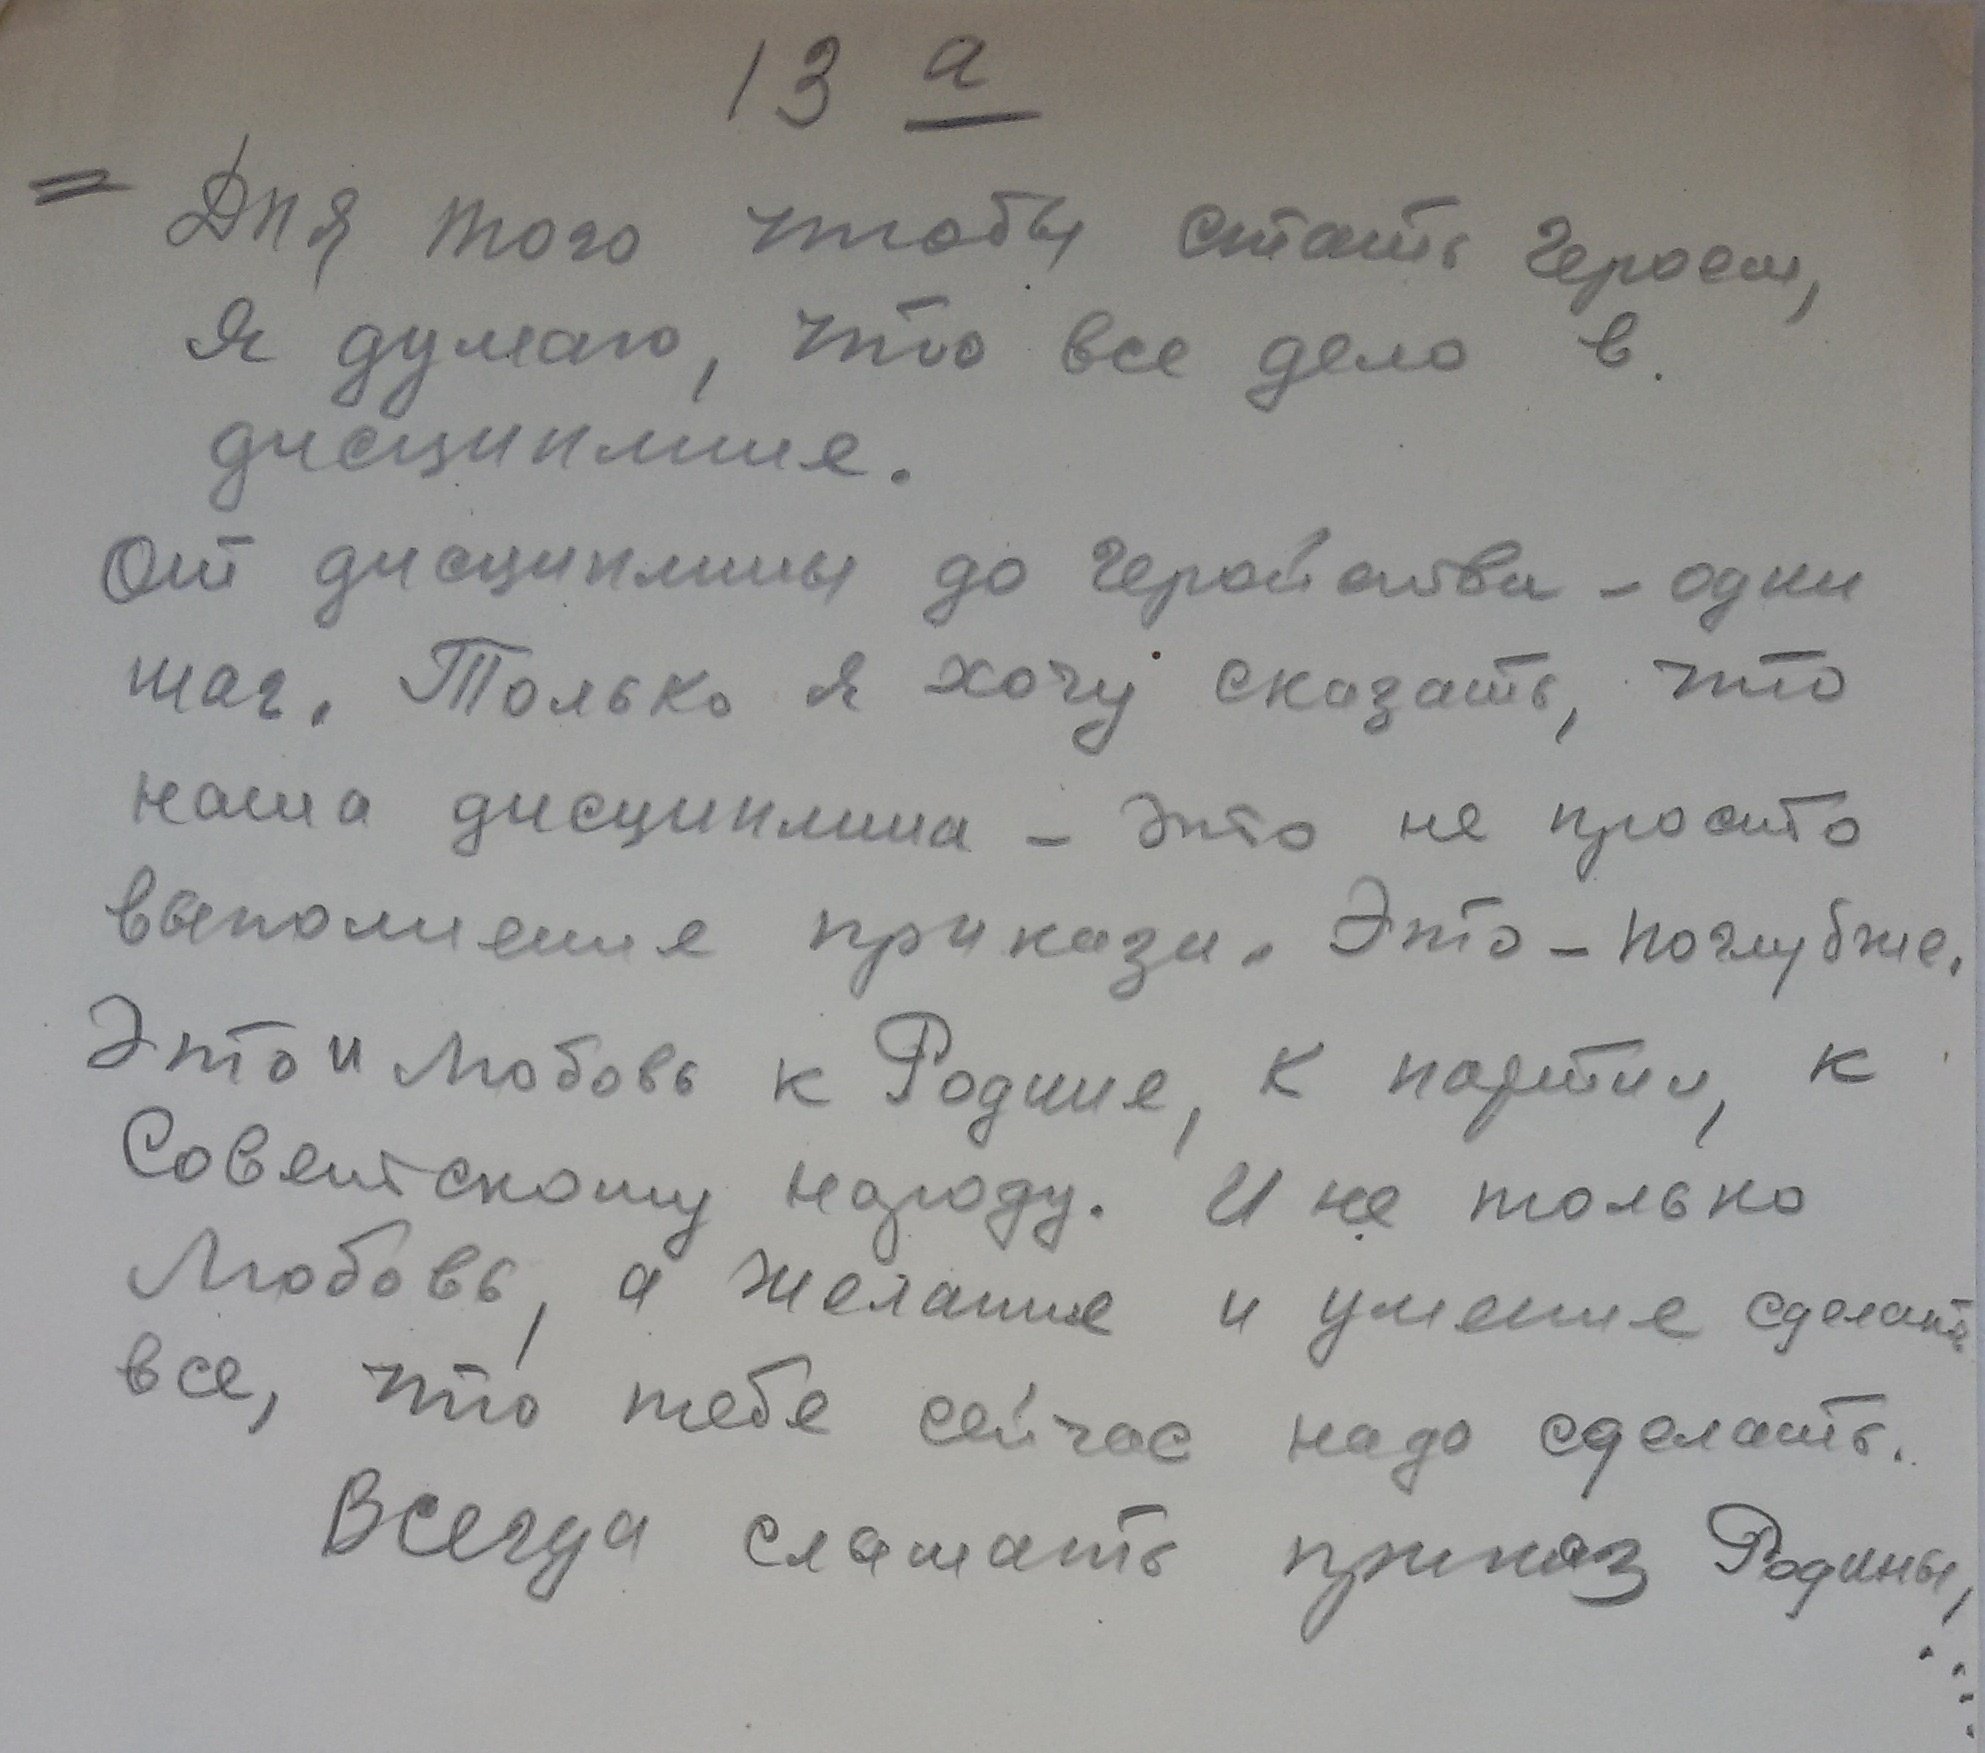 13 а
= Для того чтобы стать героем,
я думаю, что все дело в
дисциплине.
От дисциплины до геройства - один
шаг. Только я хочу сказать, что
наша дисциплина - это не просто
выполнение приказа. Это - поглубже.
Это и любовь к Родине, к партии, к
Советскому народу. И не только
любовь, а желание и умение сделать
все, что тебе сейчас надо сделать.
Всегда слышать приказ Родины,